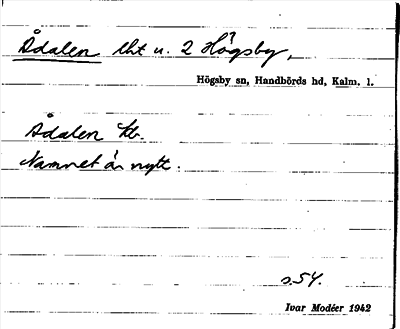 Ådalen lht u. 2 Högsby,
Högsby sn, Handbörds hd, Kalm. l.
Ådalen kb.
Namnet är nytt.
s. 54.
Ivar Modéer 1942